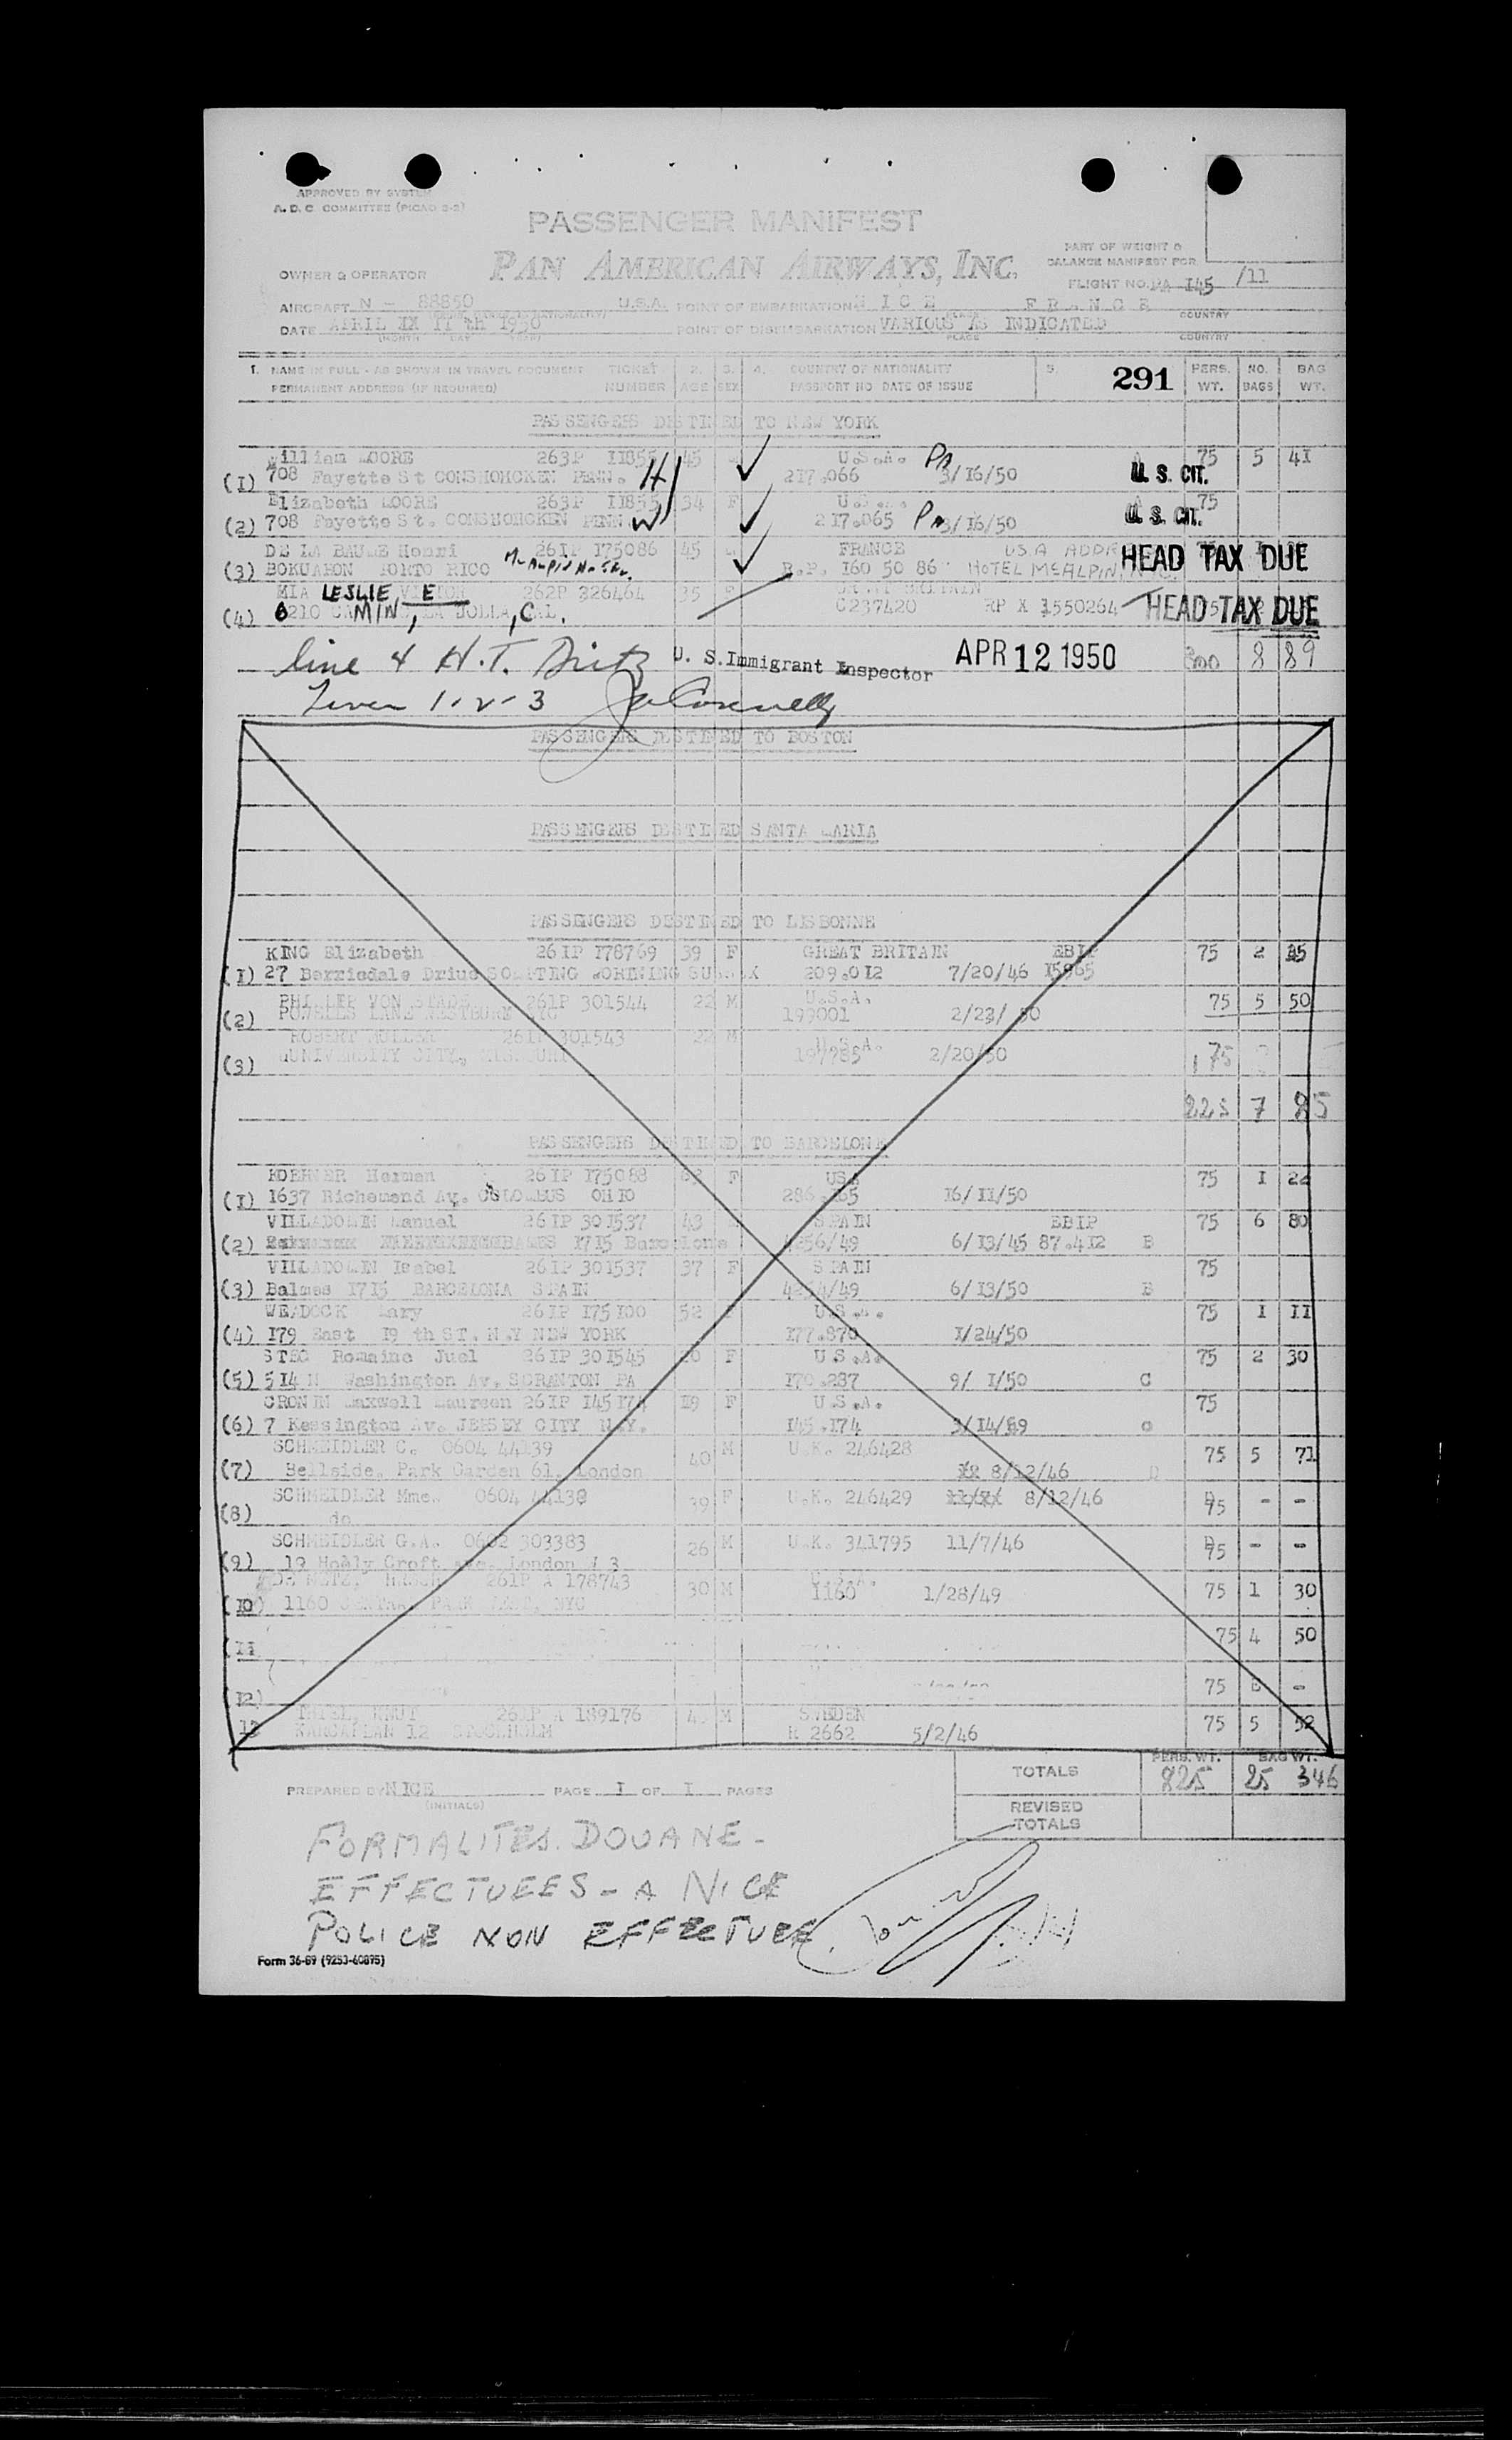 APPROVED BY SYSTEM
A.D.C. COMMITTEE (PICAO 3-2)
PASSENGER MANIFEST
PAN AMERICAN AIRWAYS, INC.
PART OF WEIGHT &
BALANCE MANIFEST FOR
OWNER & OPERATOR
FLIGHT NO. PA 145 /11
AIRCRAFT N - 88850 U.S.A. POINT OF EMBARKATION N I C E F R A N C E
DATE APRIL XX 11 th 1950 POINT OF DISEMBARKATION VARIOUS AS INDICATED
(MONTH DAY YEAR) PLACE COUNTRY
1. NAME IN FULL - AS SHOWN IN TRAVEL DOCUMENT TICKET 2. 3. 4. COUNTRY OF NATIONALITY 5. 291 PERS. NO. BAG
PERMANENT ADDRESS (IF REQUIRED) NUMBER AGE SEX PASSPORT NO DATE OF ISSUE WT. BAGS WT.
PASSENGERS DESTINED TO NEW YORK
William MOORE 263P 11855 45 U.S.A. 75 5 41
(1) 708 Fayette St CONSHOHCKEN PENN. H 217.066 3/16/50 U. S. CIT.
Elizabeth MOORE 263P 11855 34 F U.S.A. 75
(2) 708 Fayette St. CONSHOHCKEN PENN W 217.065 3/16/50 U. S. CIT.
DE LA BAUME Henri 261P 175086 45 FRANCE USA ADDR
(3) BOKUARON PORTO RICO R.P. 160 50 86 HOTEL MCALPIN, HEAD TAX DUE
MIA LESLIE, 262P 326464 35 GREAT BRITAIN
(4) 6210 CAMIN, LA JOLLA, CAL. C237420 RP X 1550264 HEAD TAX DUE
line 4 H.T. U. S. Immigrant Inspector APR 12 1950 300 8 89
1-2-3
PASSENGERS DESTINED TO BOSTON
PASSENGERS DESTINED SANTA MARIA
PASSENGERS DESTINED TO LISBONNE
KING Elizabeth 261P 178769 39 F GREAT BRITAIN EBIP 75 2 35
(1) 27 Berriedale Driue SOMPTING WORHNING SUSSEX 209.012 7/20/46 15965
PHILLIP VON STADE 261P 301544 22 M U.S.A. 75 5 50
(2) POWELLS LANE WESTBURY NYC 199001 2/23/ 50
ROBERT MULLER 261P 301543 22 M U.S.A. 75
(3) UNIVERSITY CITY, MISSOURI 2/20/50
225 7 85
PASSENGERS DESTINED TO BARCELONE
KOERNER Herman 261P 175088 F USA 75 1 22
(1) 1637 Richemond Av. COLOMBUS OHIO 286.165 16/11/50
VILLADOMIN Manuel 261P 301537 43 SPAIN EBIP 75 6 80
(2) 1715 Barcelone 4256/49 6/13/45 87.412 B
VILLADOMIN Isabel 261P 301537 37 F SPAIN 75
(3) Balmes 1715 BARCELONA SPAIN 4254/49 6/13/50 B
WEADOCK Mary 261P 175100 52 F U.S.A. 75 1 11
(4) 179 East 19 th ST. N.Y NEW YORK 177.870 1/24/50
STEG Romaine Juel 261P 301545 20 F U.S.A. 75 2 30
(5) 514 N Washington Av. SCRANTON PA 170.287 9/ 1/50 C
CRONIN Maxwell Maureen 261P 145174 19 F U.S.A. 75
(6) 7 Kessington Av. JERSEY CITY N.Y. 145.174 3/14/49 C
SCHMEIDLER C. 0604 44139 40 M U.K. 246428 75 5 71
(7) Bellside, Park Garden 61, London 8/12/46 D
SCHMEIDLER Mme. 0604 44138 39 F U.K. 246429 8/12/46 75 - -
(8) do
SCHMEIDLER G.A. 0602 303383 26 M U.K. 341795 11/7/46 75 - -
(9) 19 Holly Croft Ave. London
DE METZ, 261P A 178743 30 M U.S.A. 75 1 30
(10) 1160 CENTRAL PARK WEST, NYC 1160 1/28/49
(11 75 4 50
(12) 75 -
THIEL, KNUT 261P A 189176 45 M SWEDEN 75 5 52
13 KARLAPLAN 12 STOCKHOLM R 2662 5/2/46
PERS. WT. BAG WT.
TOTALS 825 25 346
PREPARED BY NICE PAGE 1 OF 1 PAGES
(INITIALS)
REVISED
TOTALS
FORMALITES. DOUANE -
EFFECTUEES - A NICE
POLICE NON EFFECTUEE
Form 36-89 (9253-60875)